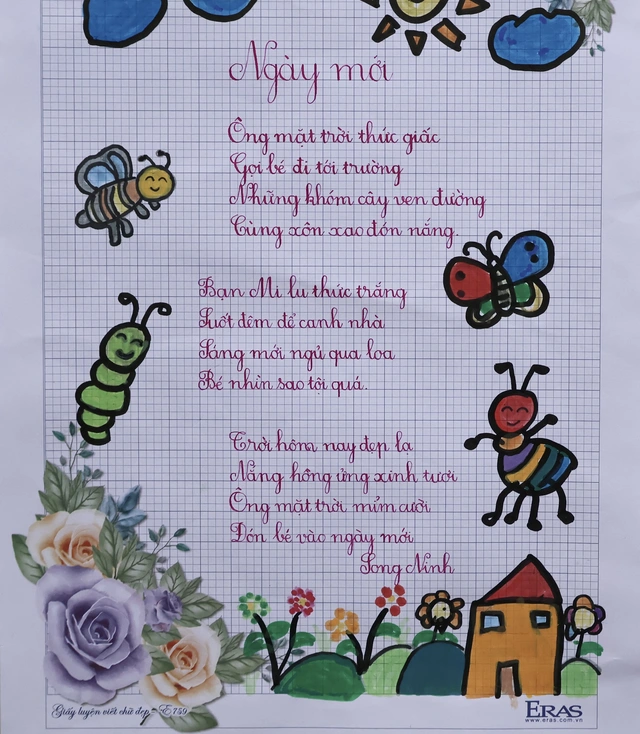 Ngày mới
Ông mặt trời thức giấc
Gọi bé đi tới trường
Những khóm cây ven đường
Cùng xôn xao đón nắng.
Bạn Mi lu thức trắng
Suốt đêm để canh nhà
Sáng mới ngủ qua loa
Bé nhìn sao tội quá.
Trời hôm nay đẹp lạ
Nắng hồng ửng xinh tươi
Ông mặt trời mỉm cười
Đón bé vào ngày mới
Song Ninh
Giấy luyện viết chữ đẹp - E 759
ERAS
www.eras.com.vn